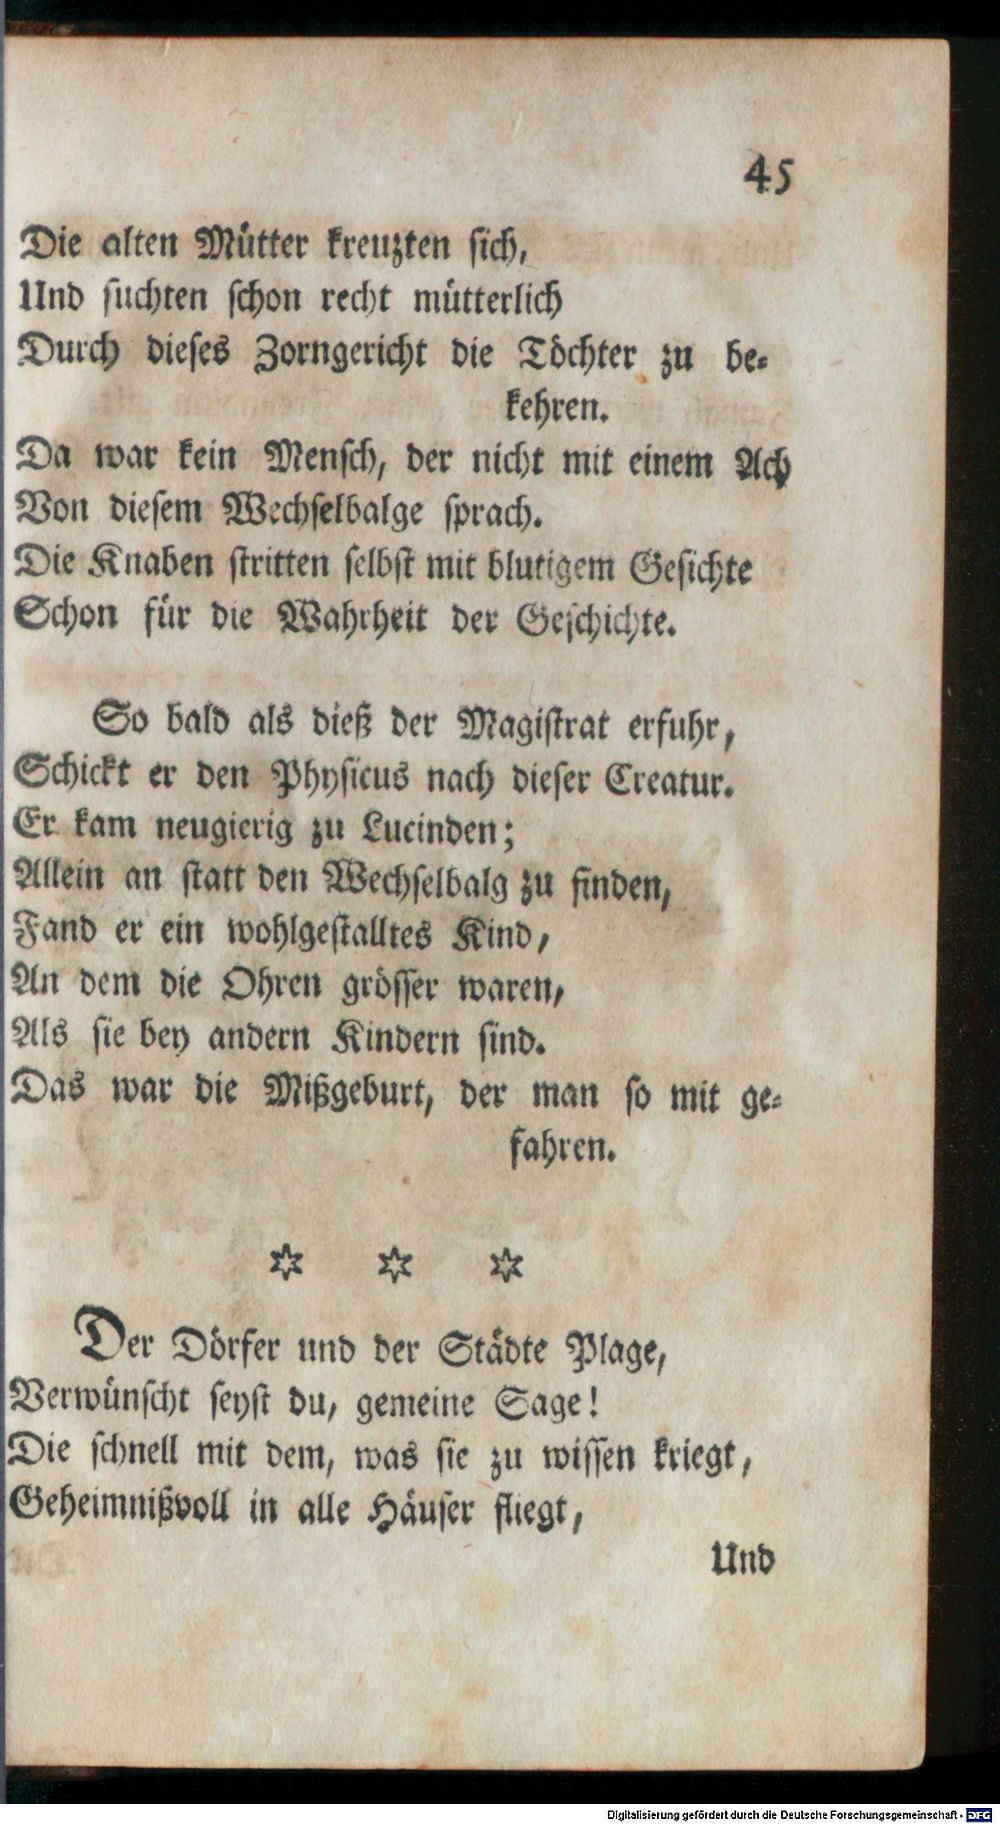 45
Die alten Mütter kreuzten sich,
Und suchten schon recht mütterlich
Durch dieses Zorngericht die Töchter zu be-
kehren.
Da war kein Mensch, der nicht mit einem Ach
Von diesem Wechselbalge sprach.
Die Knaben stritten selbst mit blutigem Gesichte
Schon für die Wahrheit der Geschichte.
So bald als dieß der Magistrat erfuhr,
Schickt er den Physicus nach dieser Creatur.
Er kam neugierig zu Lucinden;
Allein an statt den Wechselbalg zu finden,
Fand er ein wohlgestalltes Kind,
An dem die Ohren grösser waren,
Als sie bey andern Kindern sind.
Das war die Mißgeburt, der man so mit ge-
fahren.
* * *
Der Dörfer und der Städte Plage,
Verwünscht seyst du, gemeine Sage!
Die schnell mit dem, was sie zu wissen kriegt,
Geheimnißvoll in alle Häuser fliegt,
Und
Digitalisierung gefördert durch die Deutsche Forschungsgemeinschaft - DFG